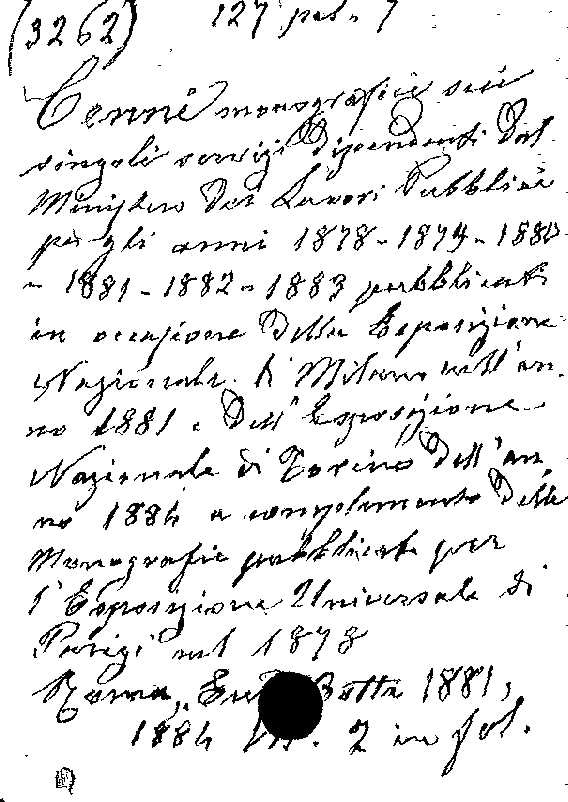 (3262) 127 pal. 7
Cenni monografici sui
singoli servizi dipendenti dal
Ministero dei Lavori Pubblici
per gli anni 1878 - 1879 - 1880
- 1881 - 1882 - 1883 pubblicati
in occasione della Esposizione
Nazionale di Milano nell'an-
no 1881 e dell'Esposizione
Nazionale di Torino dell'an-
no 1884 a complemento delle
Monografie pubblicate per
l'Esposizione Universale di
Parigi nel 1878
Roma, Botta 1881,
1884 2 in fol.